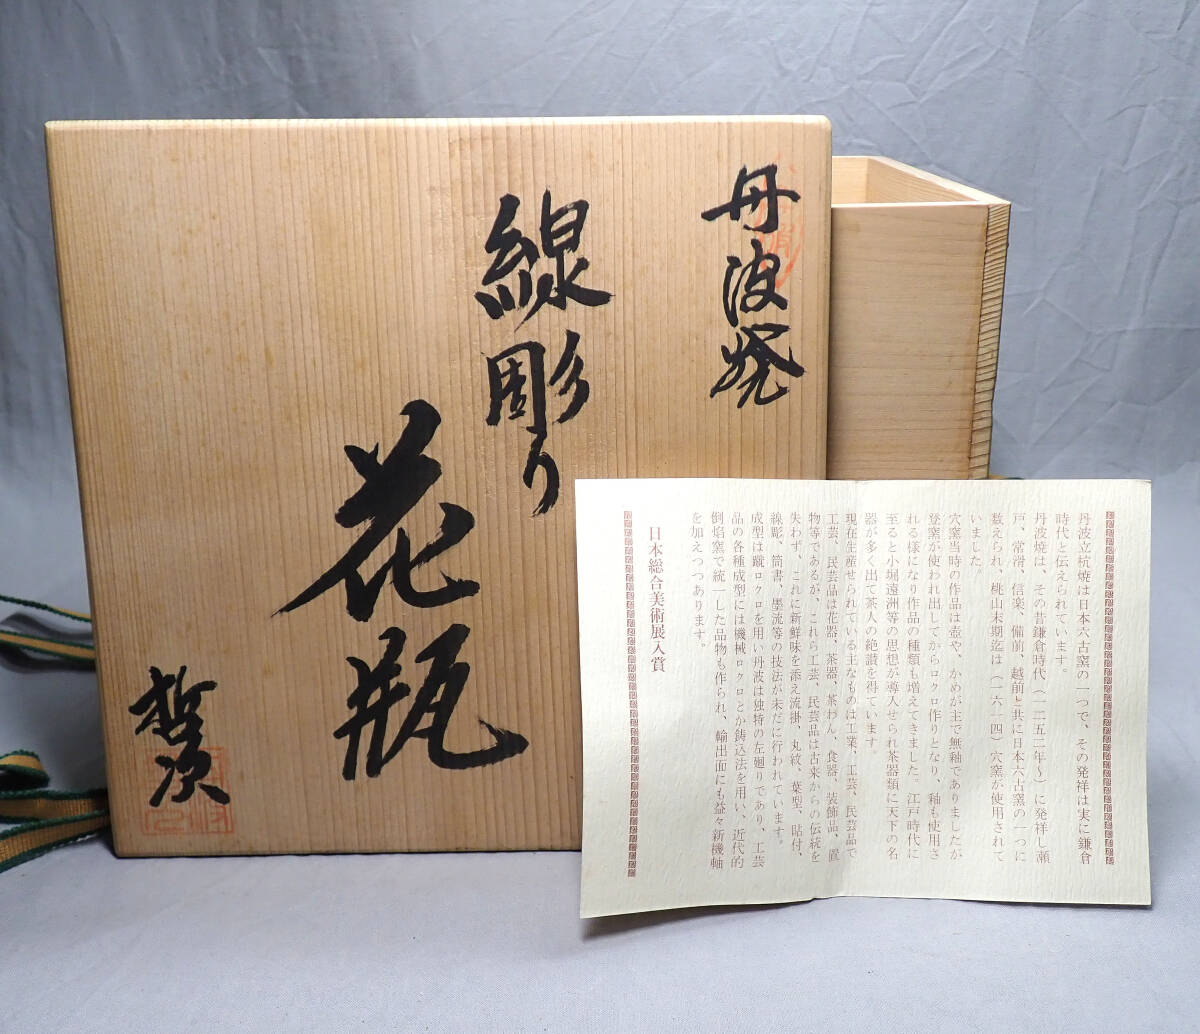 丹波焼
線彫り
花瓶
哲次
丹波立杭焼は日本六古窯の一つで、その発祥は実に鎌倉
時代と伝えられています。
丹波焼は、その昔鎌倉時代(一二五二年～)に発祥し瀬
戸、常滑、信楽、備前、越前と共に日本六古窯の一つに
数えられ、桃山末期迄は(一六一四)穴窯が使用されて
いました。
穴窯当時の作品は壺や、かめが主で無釉でありましたが
登窯が使われ出してからロクロ作りとなり、釉も使用さ
れる様になり作品の種類も増えてきました。江戸時代に
至ると小堀遠洲等の思想が導入せられ茶器類に天下の名
器が多く出て茶人の絶讃を得ています。
現在生産せられている主なものは工業、工芸、民芸品で
工芸、民芸品は花器、茶器、茶わん、食器、装飾品、置
物等であるが、これら工芸、民芸品は古来からの伝統を
失わず、これに新鮮味を添え流掛、丸紋、葉型、貼付、
線彫、筒書、墨流等の技法が未だに行われています。
成型は蹴ロクロを用い丹波は独特の左廻りであり、工芸
品の各種成型には機械ロクロとか鋳込法を用い、近代的
倒焰窯で統一した品物も作られ、輸出面にも益々新機軸
を加えつつあります。
日本総合美術展入賞